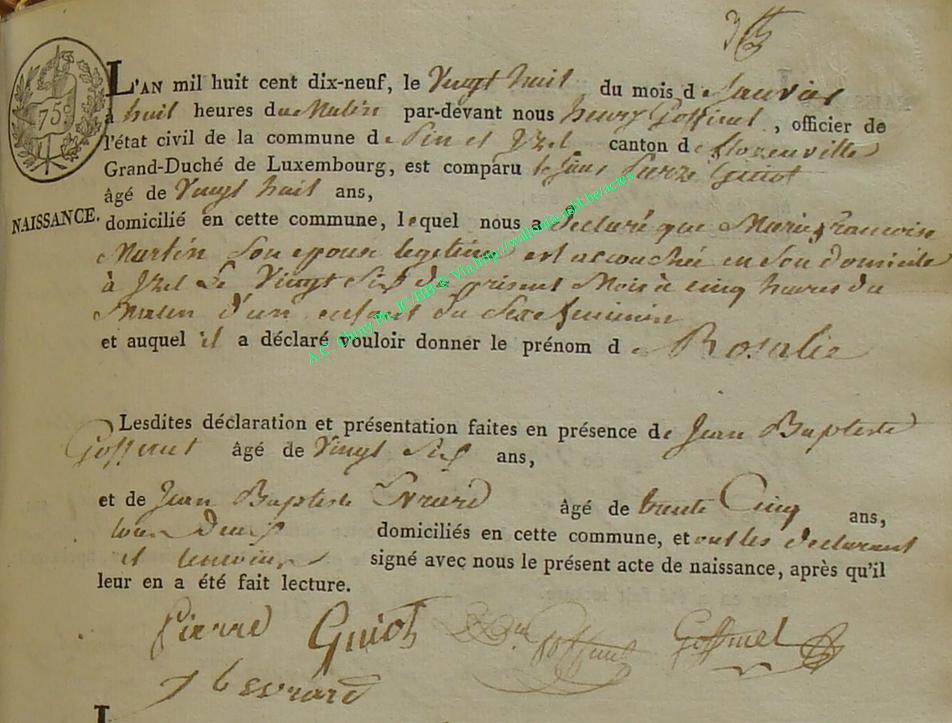 3
75
L'AN mil huit cent dix-neuf, le Vingt huit du mois de Janvier
à huit heures du Matin par-devant nous henry Goffinet, officier de
l'état civil de la commune de Pin et Izel canton de florenville
Grand-Duché de Luxembourg, est comparu le Guiot
âgé de Vingt huit ans,
NAISSANCE.
domicilié en cette commune, lequel nous a declaré que Marie francoise
Martin Son epouse legitime est accouchée en Son domicile
à Izel Le Vingt Six du present Mois à cinq heures du
Matin d'un enfant du Sexe feminin
et auquel il a déclaré vouloir donner le prénom de Rosalie
Lesdites déclaration et présentation faites en présence de Jean Baptiste
Goffinet âgé de Vingt Six ans,
et de Jean Baptiste Evrard âgé de trente Cinq ans,
tous Deux domiciliés en cette commune, et ont les declarant
et temoins signé avec nous le présent acte de naissance, après qu'il
leur en a été fait lecture.
Pierre Guiot Goffinet Goffinet
J b evrard
L